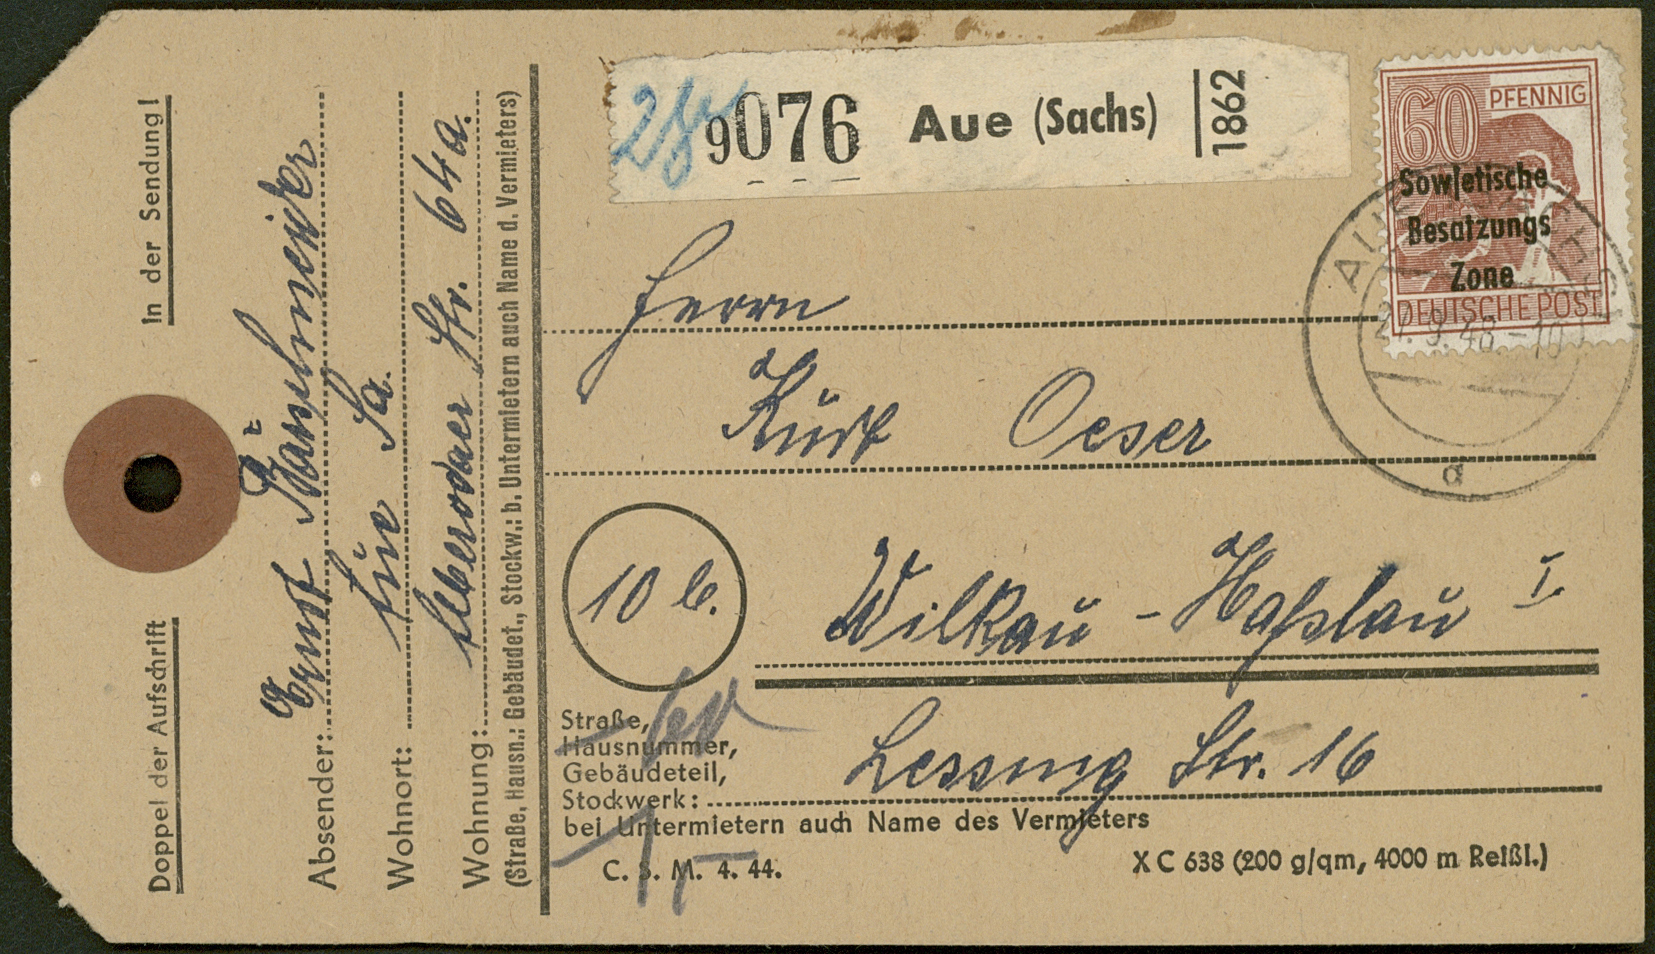 In der Sendung!
Doppel der Aufschrift
Absender: Ernst
Wohnort: Aue Sa.
Wohnung: Alberodaer Str. 64a.
(Straße, Hausn.: Gebäudet., Stockw.: b. Untermietern auch Name d. Vermieters)
9076 Aue (Sachs) 1862
60 PFENNIG
Sowjetische
Besatzungs
Zone
DEUTSCHE POST
27.9.48.-10
a
Herrn
Kurt Oeser
10 b. Wilkau - Haßlau I.
Straße,
Hausnummer,
Gebäudeteil,
Stockwerk: Lessing Str. 16
bei Untermietern auch Name des Vermieters
C. S. M. 4. 44.
X C 638 (200 g/qm, 4000 m Reißl.)